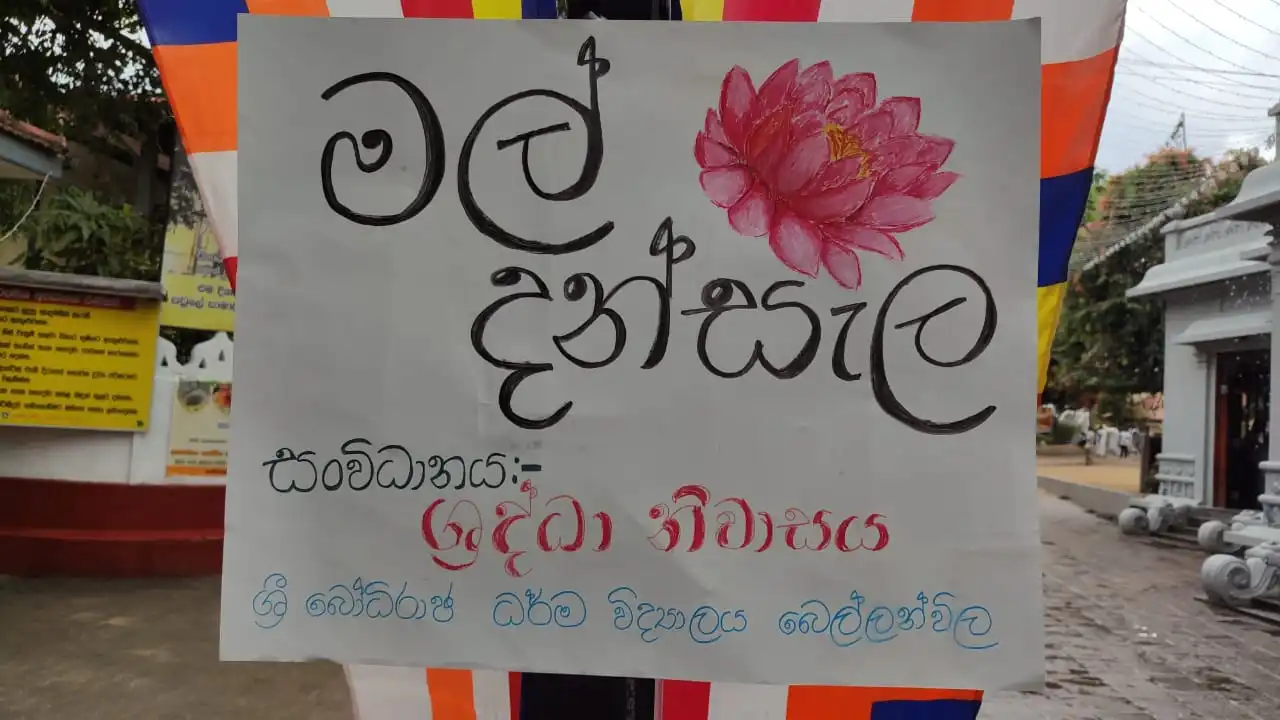 මල්
දන්සැල
සංවිධානය:-
ශ්‍රද්ධා නිවාසය
ශ්‍රී බෝධිරාජ ධර්ම විද්‍යාලය බෙල්ලන්විල